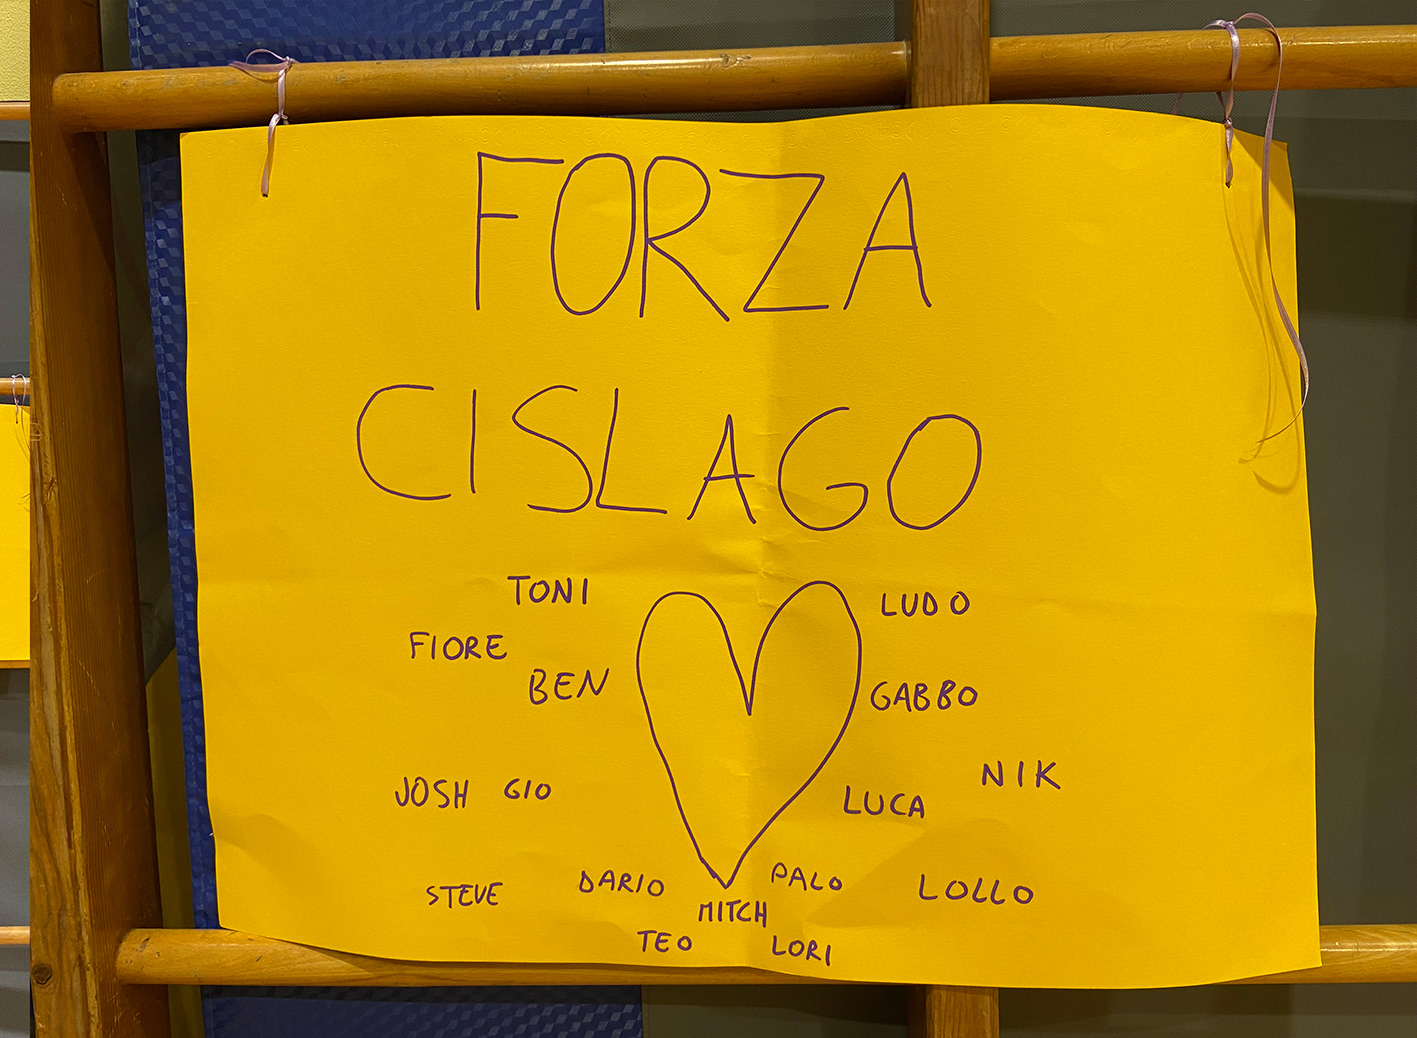 FORZA
CISLAGO
TONI
LUDO
FIORE
BEN
GABBO
NIK
JOSH GIO
LUCA
STEVE
DARIO
PALO
LOLLO
MITCH
TEO
LORI